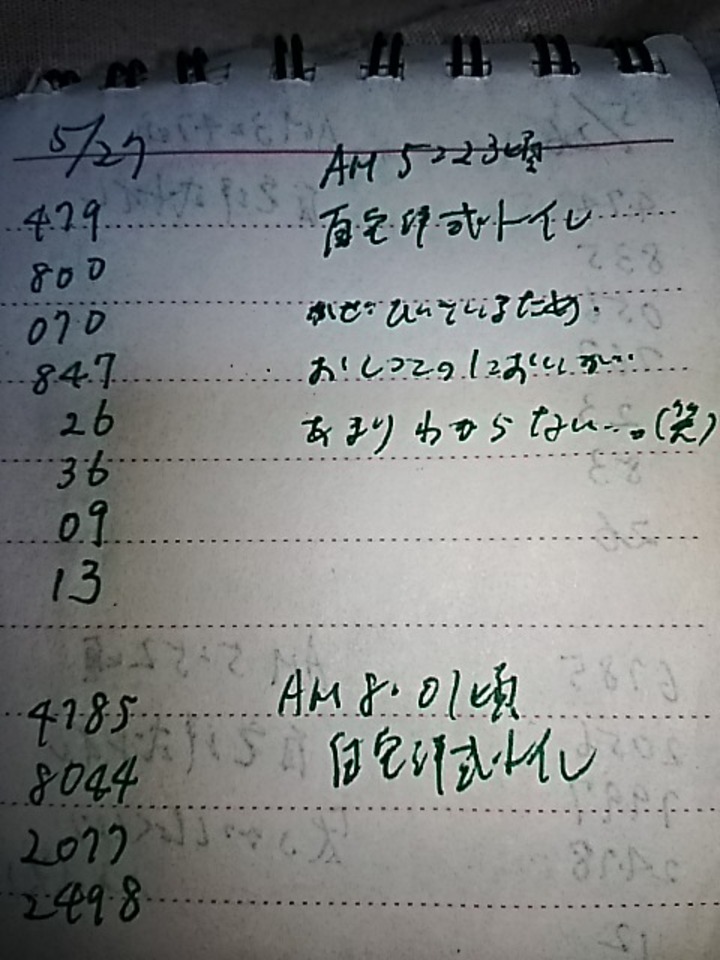 5/27
AM 5:23頃
479
自宅洋式トイレ
800
070
かぜひいているため.
847
おしっこのにおいが…
26
あまりわからない…。(笑)
36
09
13
4785
AM 8:01頃
8044
自宅洋式トイレ
2077
2498